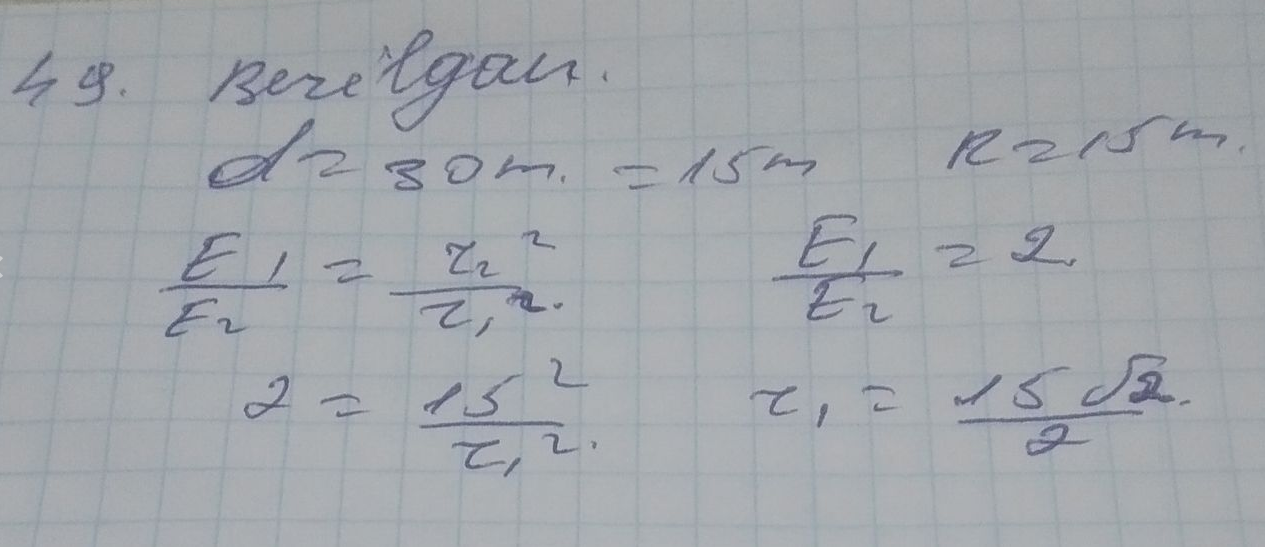 49. Berilgan.
d = 30 m. = 15 m R = 15 m.
E₁/E₂ = r₂²/r₁². E₁/E₂ = 2.
2 = 15²/r₁². r₁ = 15√2/2.